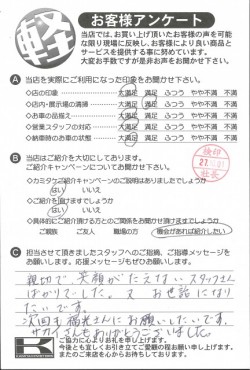 軽
お客様アンケート
当店では、お買い上げ頂いたお客様の声を可能な限り現場に反映し、お客様により良い商品とサービスを提供する事に努めています。
大変お手数ですが是非お声をお聞かせ下さい。
A 当店を実際にご利用になった印象をお聞かせ下さい。
◇店の印象 大満足 満足 ふつう やや不満 不満
◇店内・展示場の清掃 大満足 満足 ふつう やや不満 不満
◇お車の品揃え 大満足 満足 ふつう やや不満 不満
◇営業スタッフの対応 大満足 満足 ふつう やや不満 不満
◇納車時のお車の状態 大満足 満足 ふつう やや不満 不満
B 当店はご紹介を大切にしております。
ご紹介キャンペーンについてお聞かせ下さい。
◇カミタケご紹介キャンペーンのご説明はありましたでしょうか
はい いいえ
◇ご紹介を頂けますでしょうか
はい いいえ
◇具体的にご紹介頂ける方とのご関係をお聞かせ頂けますでしょうか
ご親族 ご友人 職場の方 機会があれば紹介したい
C 担当させて頂きましたスタッフへのご指摘、ご指導メッセージをお願いします。応援メッセージもぜひお願いします。
親切で、笑顔がたえないスタッフさん
ばかりでした。又 お世話になり
たいです。
次回も福光さんにお願いしたいです。
サカイさんもありがとうございました。
ご協力に心よりお礼を申し上げます。
今後とも宜しくお引き立てご愛顧の程お願い申し上げます。
またのご来店を心からお待ちしております。